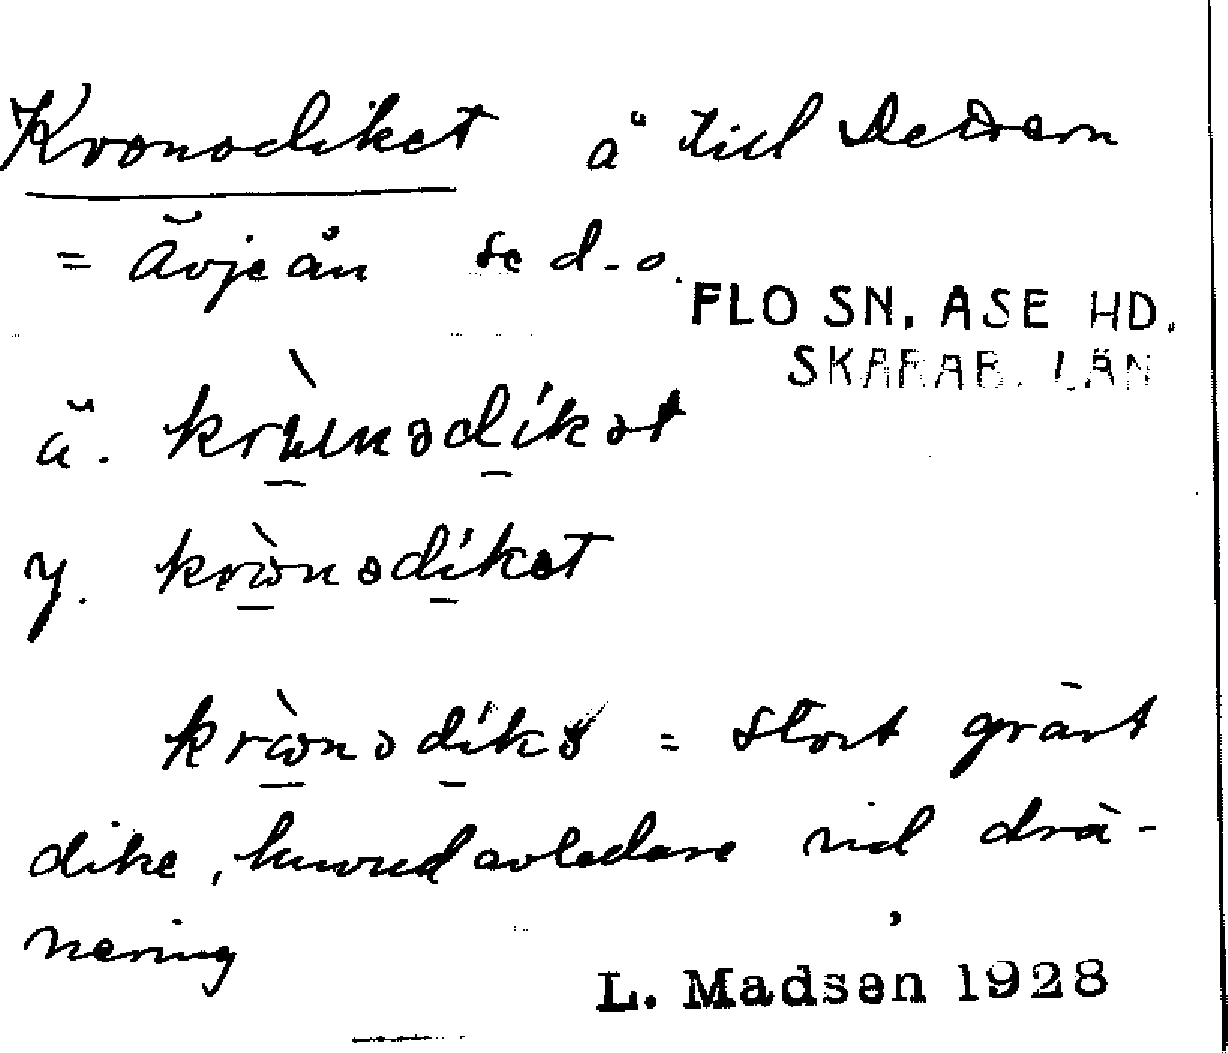 Kronodiket å till Dettern
= Ävjeån se d.o.
FLO SN. ASE HD.
SKARAB. LÄN
ä. krònədíkət
y. krònədíkət
krònədíkə = stort grävt
dike, huvudavledare vid drä-
nering
L. Madsen 1928